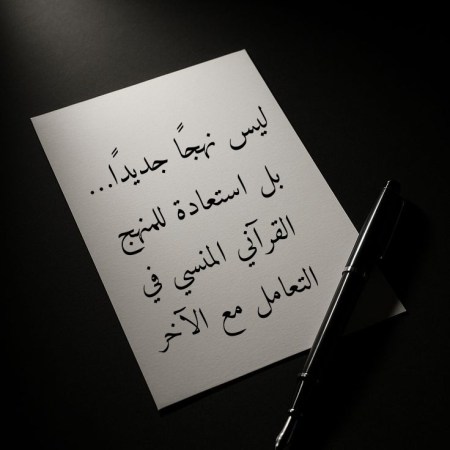 ليس نهجاً جديداً...
بل استعادة للمنهج
القرآني المنسي في
التعامل مع الآخر